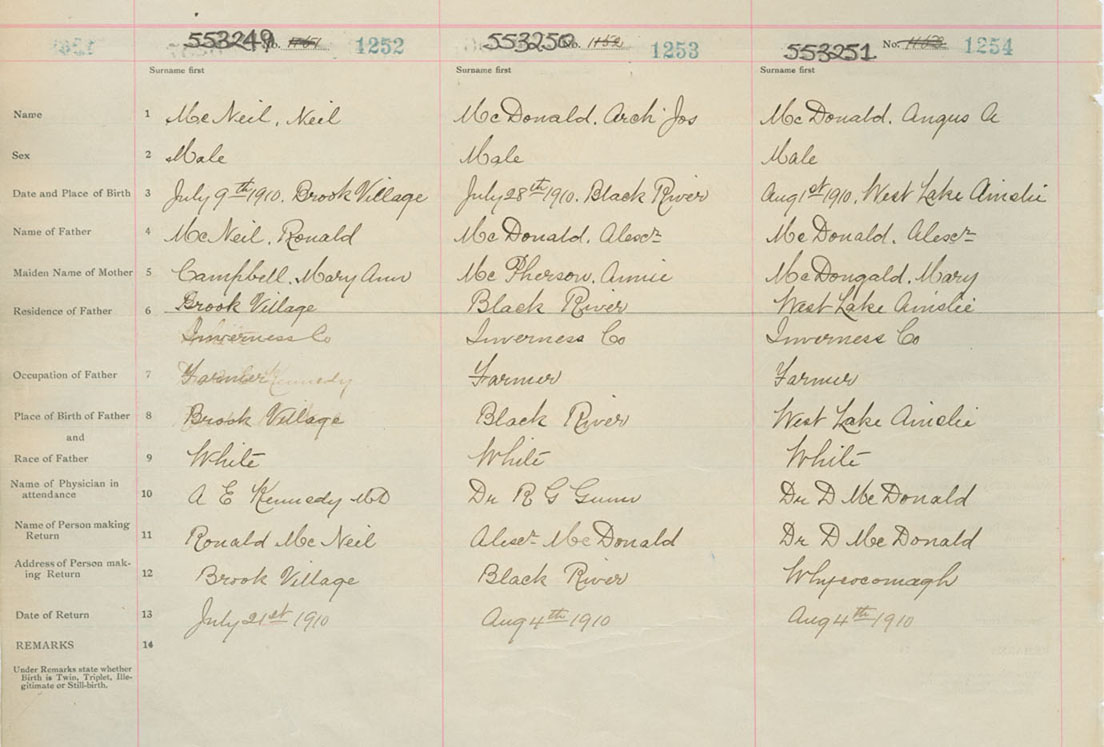 553249 No. 1151 1252 553250 No. 1152 1253 553251 No. 1153 1254
Surname first Surname first Surname first
Name 1 McNeil, Neil McDonald, Arch Jos McDonald, Angus A
Sex 2 Male Male Male
Date and Place of Birth 3 July 9th 1910. Brook Village July 28th 1910. Black River Aug 1st 1910. West Lake Ainslie
Name of Father 4 McNeil, Ronald McDonald, Alexr McDonald, Alexr
Maiden Name of Mother 5 Campbell, Mary Ann McPherson, Annie McDongald, Mary
Residence of Father 6 Brook Village Black River West Lake Ainslie
Inverness Co Inverness Co Inverness Co
Occupation of Father 7 Farmer Kennedy Farmer Farmer
Place of Birth of Father 8 Brook Village Black River West Lake Ainslie
and
Race of Father 9 White White White
Name of Physician in
attendance 10 A E Kennedy MD Dr R G Gunn Dr D McDonald
Name of Person making
Return 11 Ronald McNeil Alexr McDonald Dr D McDonald
Address of Person mak-
ing Return 12 Brook Village Black River Whycocomagh
Date of Return 13 July 21st 1910 Aug 4th 1910 Aug 4th 1910
REMARKS 14
Under Remarks state whether
Birth is Twin, Triplet, Ille-
gitimate or Still-birth.